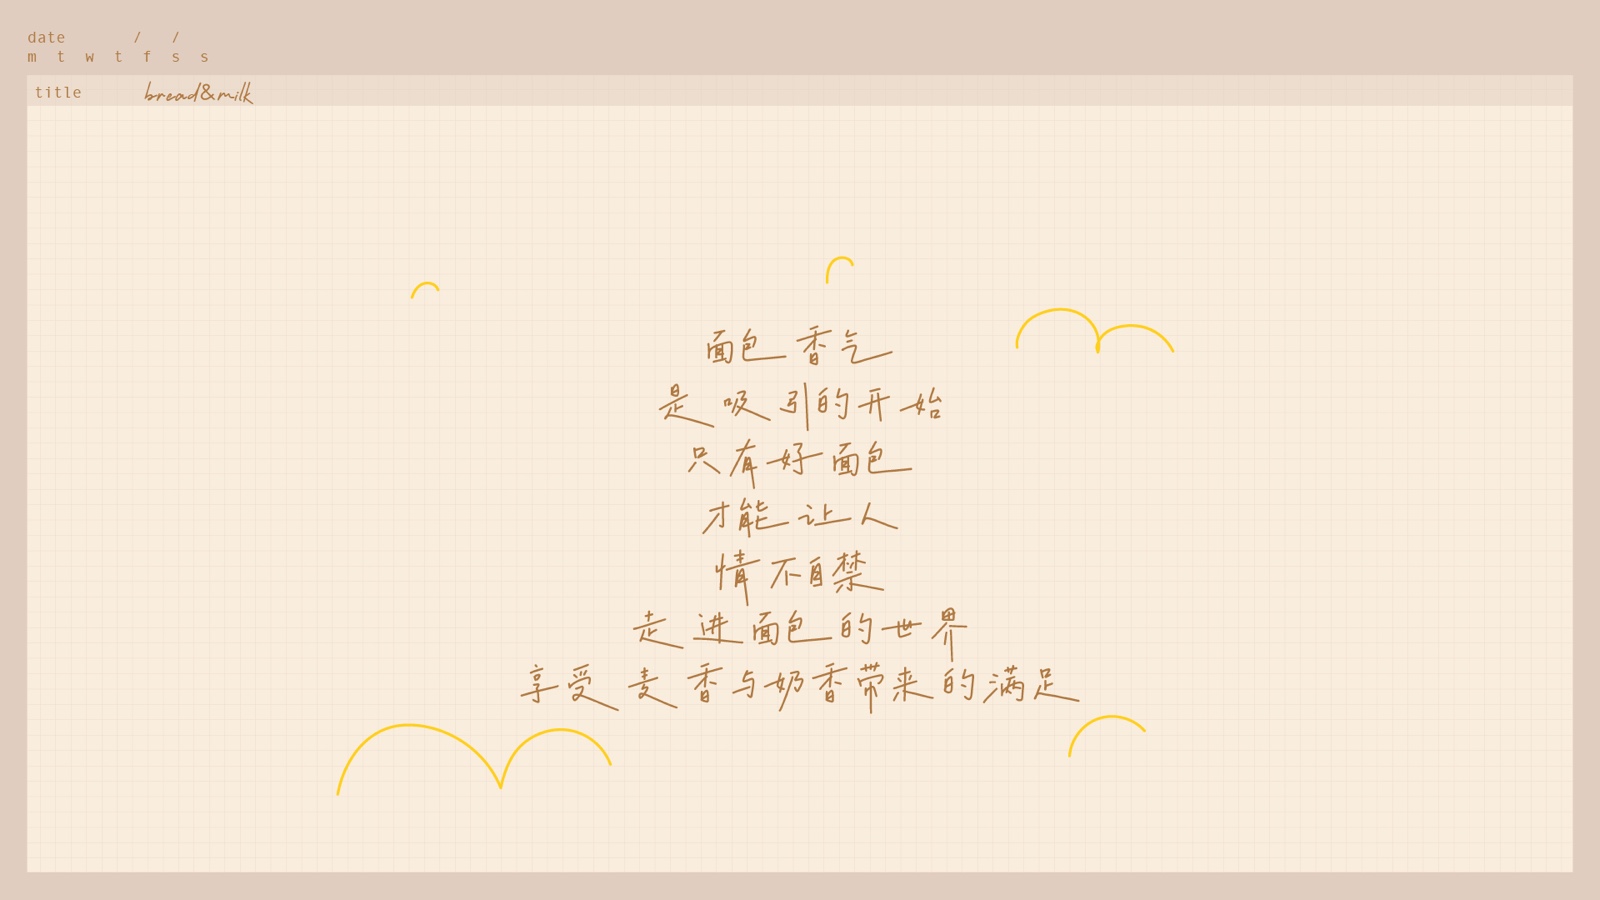 date / /
m t w t f s s
title bread&milk
面包香气
是吸引的开始
只有好面包
才能让人
情不自禁
走进面包的世界
享受麦香与奶香带来的满足